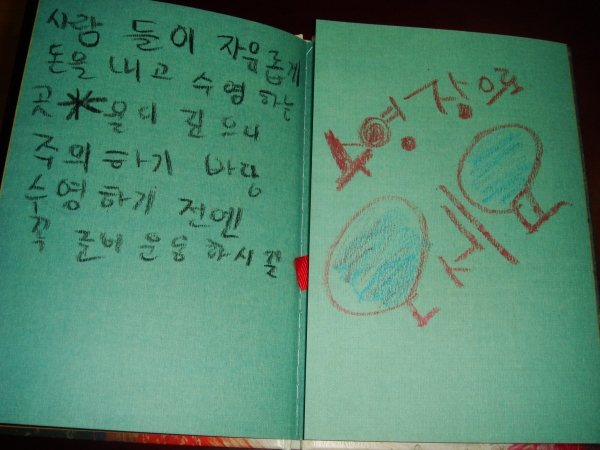 사람 들이 자유롭게
돈을 내고 수영 하는
곳 ※ 물이 깊 으니
주의 하기 바랑
수영 하기 전엔
꼭 준비 운동 하시꼴
수영장으로
오세요